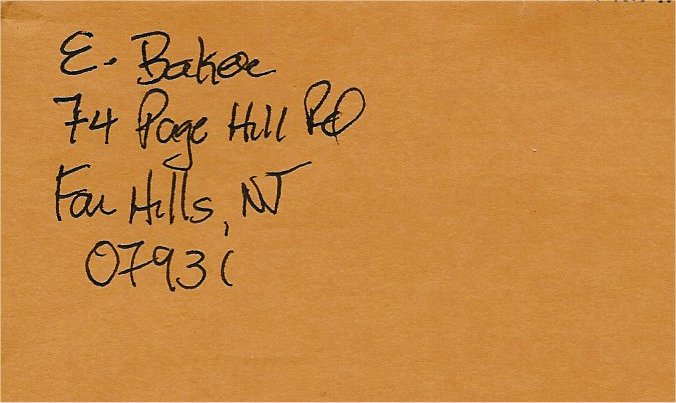 E. Baker
74 Page Hill Rd
Far Hills, NJ
07931